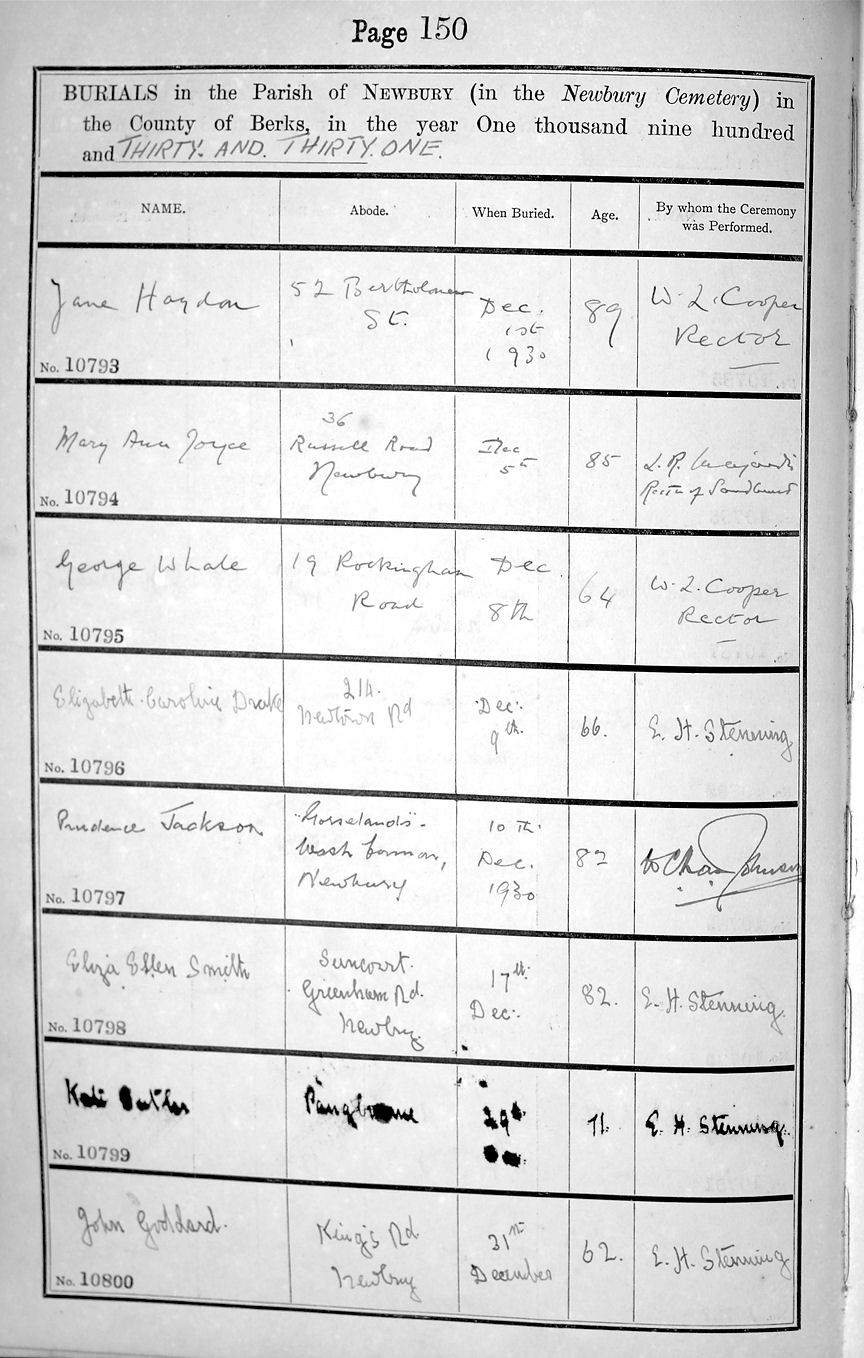 Page 150
BURIALS in the Parish of NEWBURY (in the Newbury Cemetery) in
the County of Berks, in the year One thousand nine hundred
and THIRTY. AND. THIRTY. ONE.
NAME.
Abode.
When Buried.
Age.
By whom the Ceremony
was Performed.
Jane Haydon
No. 10793
52 Bartholomew
St.
Dec.
1st
1930
89
W. L. Cooper
Rector
Mary Ann Joyce
No. 10794
36
Russell Road
Newbury
Dec
5th
85
L. R.
Rector of Sandhurst
George Whale
No. 10795
19 Rockingham
Road
Dec.
8th
64
W. L. Cooper
Rector
Elizabeth Caroline Drake
No. 10796
Newtown Rd
Dec:
9th.
66.
E. H. Stenning
Prudence Jackson
No. 10797
"Gorselands" -
Wash Common,
Newbury
10th.
Dec.
1930
82
Johnson
Eliza Ellen Smith
No. 10798
Suncourt.
Greenham Rd.
Newbury
17th.
Dec:.
82.
E. H. Stenning.
Kate Butler
No. 10799
Pangbourne
29th
Dec.
71.
E. H. Stenning.
John Goddard.
No. 10800
King's Rd.
Newbury
31st
December
62.
E. H. Stenning